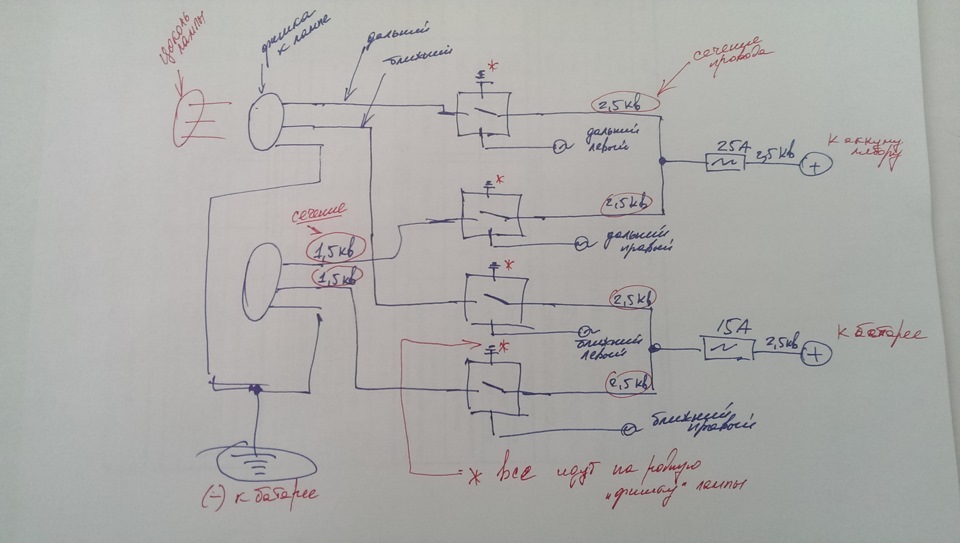 цоколь
лампы
фишка
к лампе
дальний
ближний
сечение
провода
*
2,5кв
дальний
левый
25А
2,5кв
+
к аккуму
лятору
*
сечение
2,5кв
1,5кв
дальний
правый
1,5кв
*
2,5кв
ближний
левый
15А
2,5кв
+
к батарее
*
2,5кв
ближний
правый
* все идут на родную
"фишку" лампы
(-) к батарее